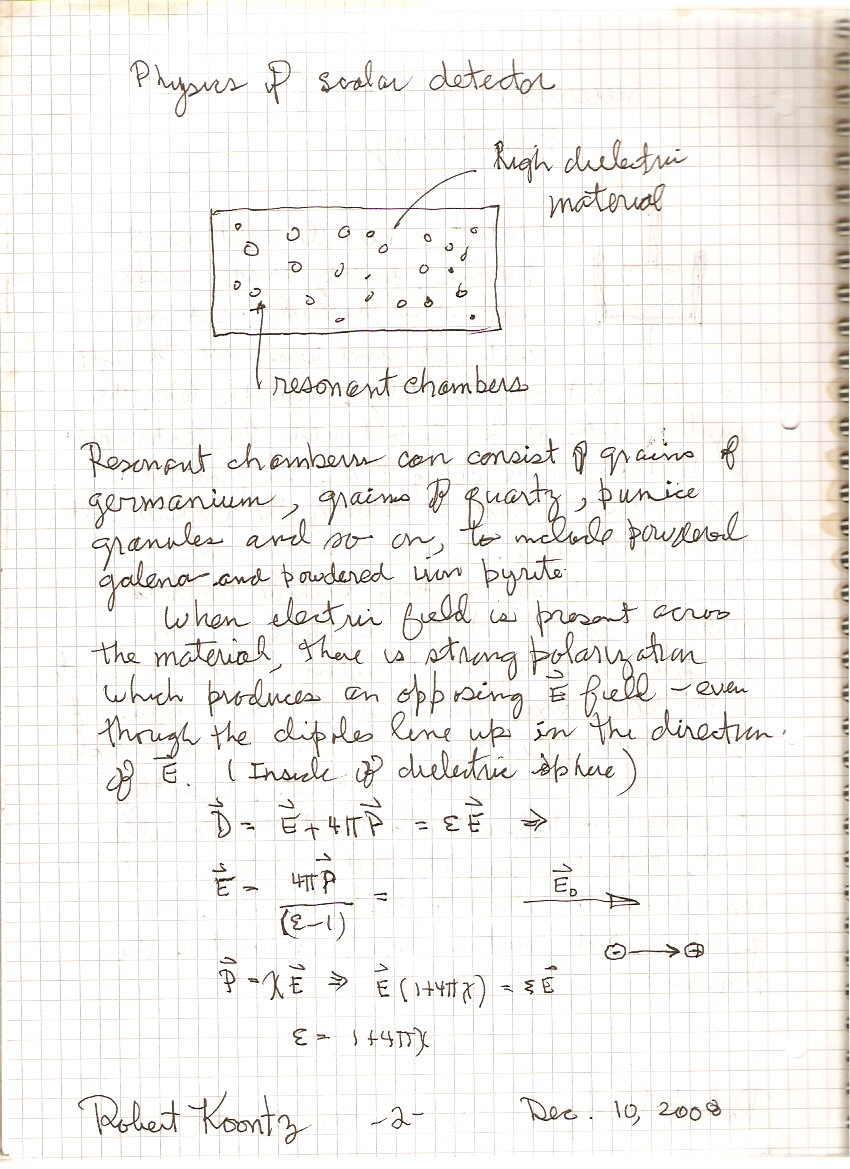 Physics of scalar detector
High dielectric
material
resonant chambers
Resonant chambers can consist of grains of
germanium, grains of quartz, pumice
granules and so on, to include powdered
galena and powdered iron pyrite.
When electric field is present across
the material, there is strong polarization
which produces an opposing E⃗ field – even
though the dipoles line up in the direction
of E⃗. (Inside of dielectric sphere)
D⃗ = E⃗ + 4πP⃗ = εE⃗ ⇒
E⃗ = 4πP⃗ / (ε-1) =
E⃗₀
⊖→⊕
P⃗ = χE⃗ ⇒ E⃗(1+4πχ) = εE⃗
ε = 1+4πχ
Robert Koontz -2- Dec. 10, 2008